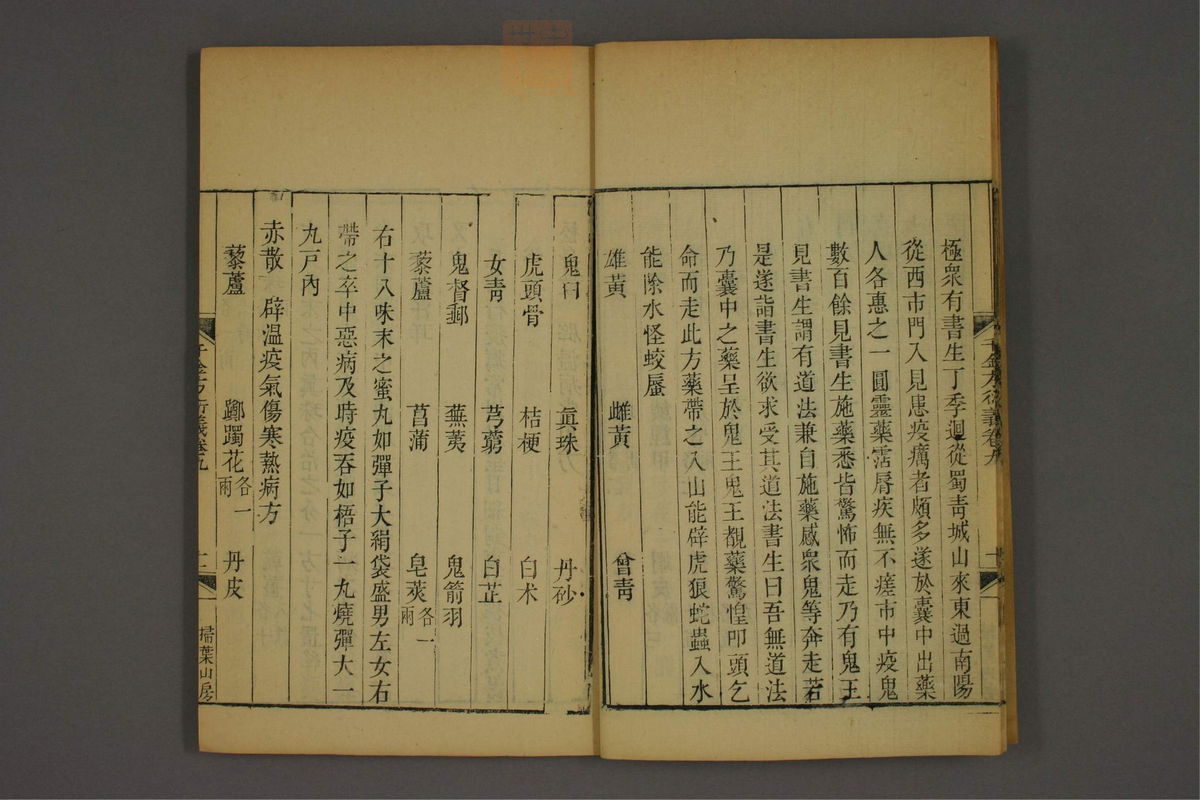 極衆有書生丁季迴從蜀靑城山來東過南陽
從西市門入見患疫癘者頗多遂於囊中出藥
人各惠之一圓靈藥霑脣疾無不瘥市中疫鬼
數百餘見書生施藥悉皆驚怖而走乃有鬼王
見書生謂有道法兼自施藥感衆鬼等奔走若
是遂詣書生欲求受其道法書生曰吾無道法
乃囊中之藥呈於鬼王鬼王覩藥驚惶叩頭乞
命而走此方藥帶之入山能辟虎狼蛇蟲入水
能除水怪蛟蜃
雄黃 雌黃 曾靑
鬼臼 眞珠 丹砂
虎頭骨 桔梗 白朮
女靑 芎藭 白芷
鬼督郵 蕪荑 鬼箭羽
藜蘆 菖蒲 皂莢各一兩
右十八味末之蜜丸如彈子大絹袋盛男左女右
帶之卒中惡病及時疫吞如梧子一丸燒彈大一
丸戶內
赤散 辟温疫氣傷寒熱病方
藜蘆 躑躅花各一兩 丹皮
千金方衍義卷九
掃葉山房